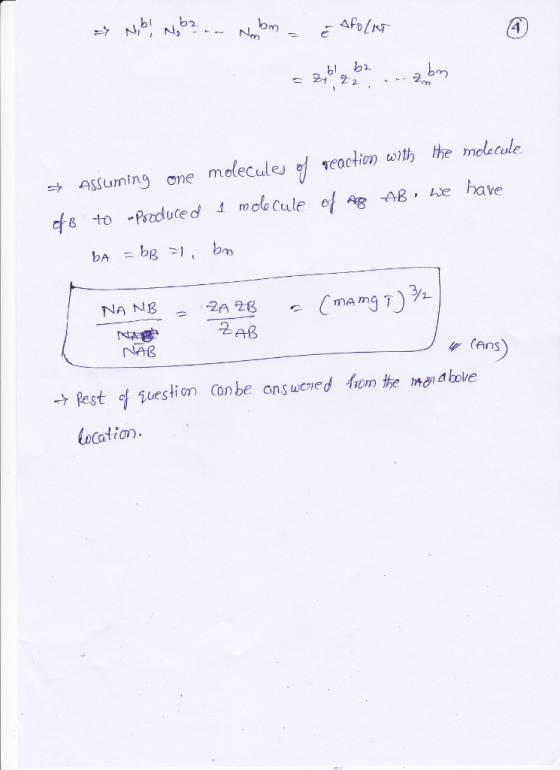 ④
⇒ N₁^b1, N₂^b2 ---- N_m^bm = e^-ΔF0/KT
= z₁^b1, z₂^b2, ... z_m^bm
⇒ Assuming one molecules of reaction with the molecule
of B to produced 1 molecule of AB. we have
bA = bB = 1, bm
NA NB / NAB = ZA ZB / ZAB = (mAmg T)^3/2
(Ans)
→ Rest of question conbe answered from the above
location.